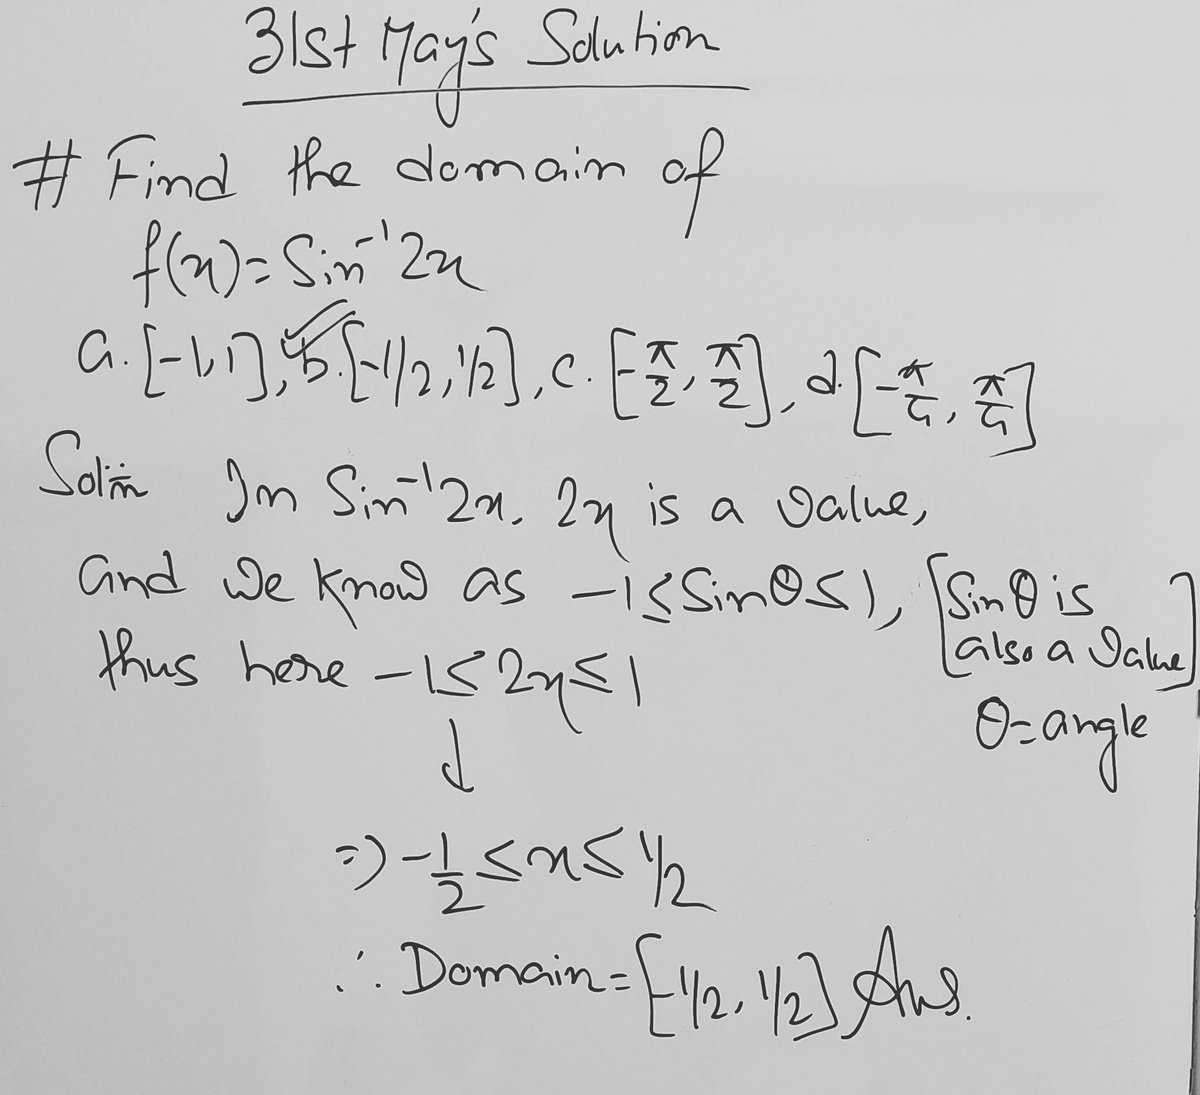 31st May's Solution
# Find the domain of
f(x)= Sin⁻¹2x
a. [-1,1], b. [-1/2, 1/2], c. [-π/2, π/2], d. [-π/4, π/4]
Sol:n In Sin⁻¹2x. 2x is a value,
and we know as -1≤Sinθ≤1, [Sinθ is
also a Value]
thus here -1≤2x≤1
θ=angle
↓
⇒ -1/2 ≤x≤ 1/2
∴ Domain=[-1/2, 1/2] Ans.